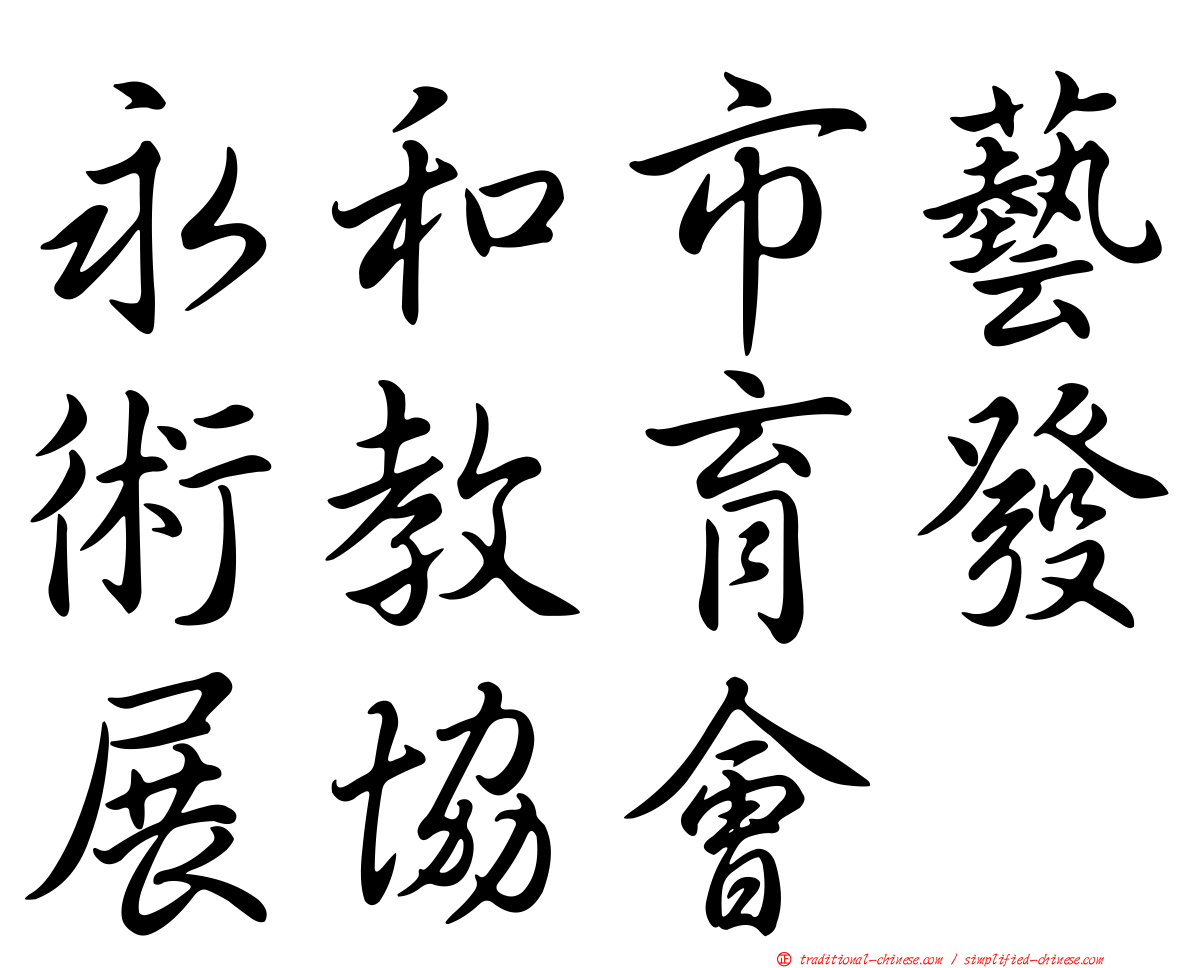 永和市藝
術教育發
展協會
正 traditional-chinese.com / simplified-chinese.com